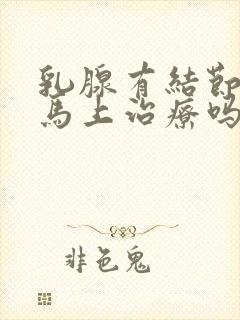 乳腺有結節
馬上治療嗎
非色鬼